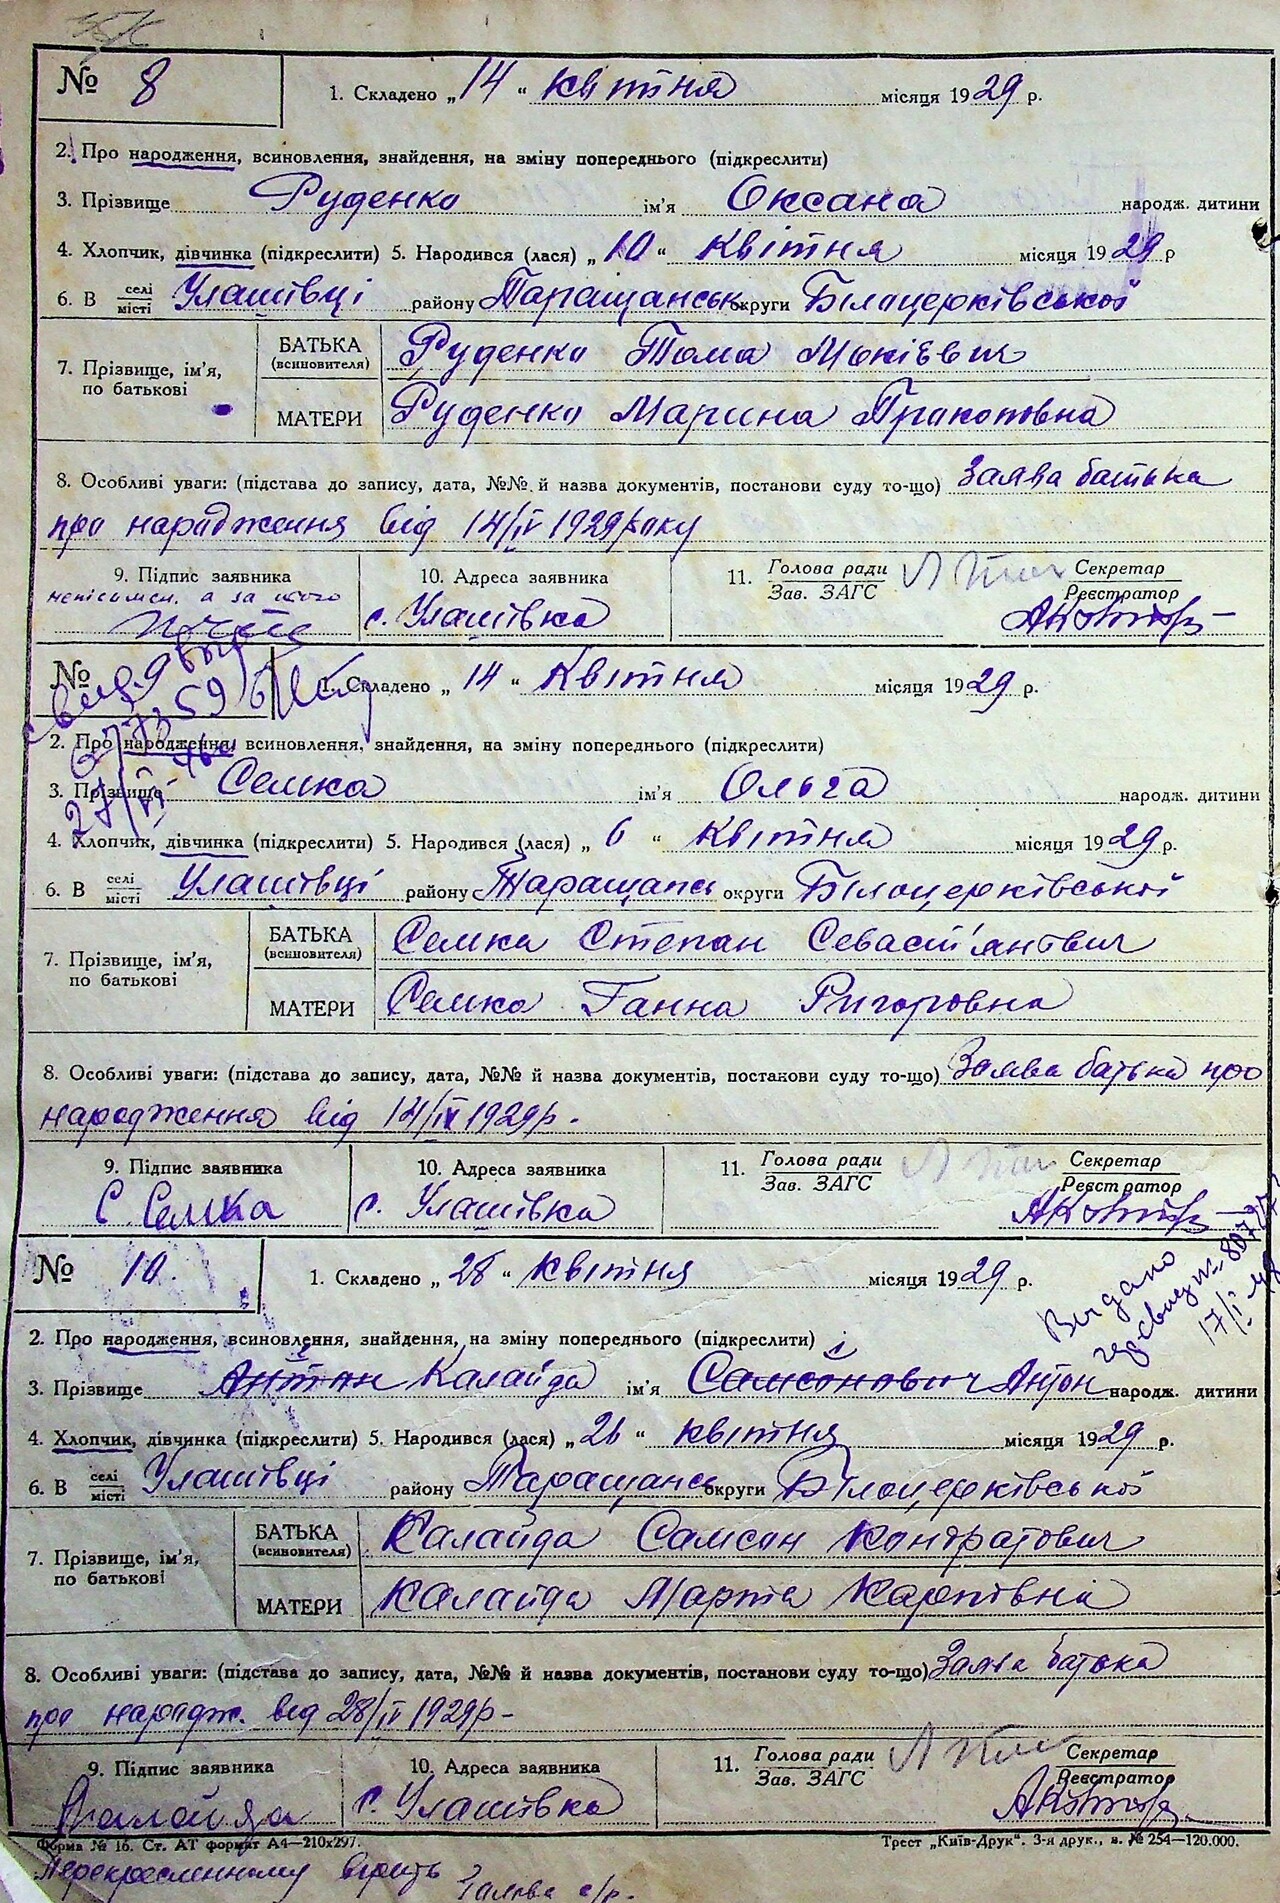 № 8
1. Складено „14“ квітня місяця 1929 р.
2. Про народження, всиновлення, знайдення, на зміну попереднього (підкреслити)
3. Прізвище Руденко ім'я Оксана народж. дитини
4. Хлопчик, дівчинка (підкреслити) 5. Народився (лася) „10“ квітня місяця 1929 р
6. В селі місті Улашівці району Таращанськ округи Білоцерківської
7. Прізвище, ім'я, по батькові
БАТЬКА (всиновителя) Руденко Тома Мокієвич
МАТЕРИ Руденко Марина Пракоповна
8. Особливі уваги: (підстава до запису, дата, №№ й назва документів, постанови суду то-що) Заява батька
про народження від 14/IV 1929 року
9. Підпис заявника 10. Адреса заявника 11. Голова ради Зав. ЗАГС Секретар Реєстратор
неписьмен. а за його
с. Улашівка
№
1. Складено „14“ Квітня місяця 1929 р.
2. Про народження, всиновлення, знайдення, на зміну попереднього (підкреслити)
3. Прізвище Семка ім'я Ольга народж. дитини
27/VI
4. Хлопчик, дівчинка (підкреслити) 5. Народився (лася) „6“ квітня місяця 1929 р.
6. В селі місті Улашівці району Таращансь округи Білоцерківської
7. Прізвище, ім'я, по батькові
БАТЬКА (всиновителя) Семка Степан Севаст'янович
МАТЕРИ Семка Ганна Ригоровна
8. Особливі уваги: (підстава до запису, дата, №№ й назва документів, постанови суду то-що) Заява батька про
народження від 14/IV 1929р.
9. Підпис заявника 10. Адреса заявника 11. Голова ради Зав. ЗАГС Секретар Реєстратор
С. Семка с. Улашівка
№ 10.
1. Складено „28“ квітня місяця 1929 р.
Видано
17/I
2. Про народження, всиновлення, знайдення, на зміну попереднього (підкреслити)
3. Прізвище Антон Калайда ім'я Самсонович Антон народж. дитини
4. Хлопчик, дівчинка (підкреслити) 5. Народився (лася) „26“ квітня місяця 1929 р.
6. В селі місті Улашівці району Таращансь округи Білоцерківської
7. Прізвище, ім'я, по батькові
БАТЬКА (всиновителя) Калайда Самсон Кондратович
МАТЕРИ Калайда Марта Карпівна
8. Особливі уваги: (підстава до запису, дата, №№ й назва документів, постанови суду то-що) Заява батька
про народж. від 28/IV 1929р-
9. Підпис заявника 10. Адреса заявника 11. Голова ради Зав. ЗАГС Секретар Реєстратор
Калайда с. Улашівка
Форма № 16. Ст. АТ формат А4—210х297. Трест „Київ-Друк“. 3-я друк., в. № 254—120.000.
Перекресленному вірить
Голова с/р.